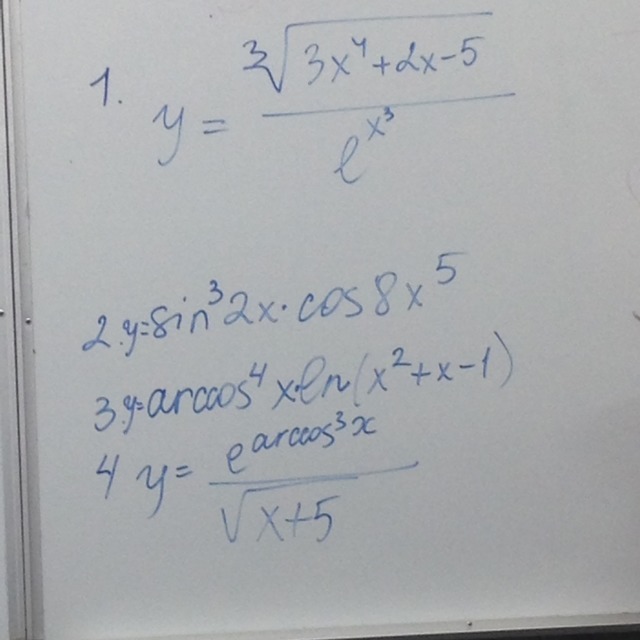 1. y = ∛(3x⁴+2x-5) / e^(x³)
2. y=sin³2x·cos8x⁵
3. y=arccos⁴x·ln(x²+x-1)
4 y= e^(arccos³x) / √(x+5)